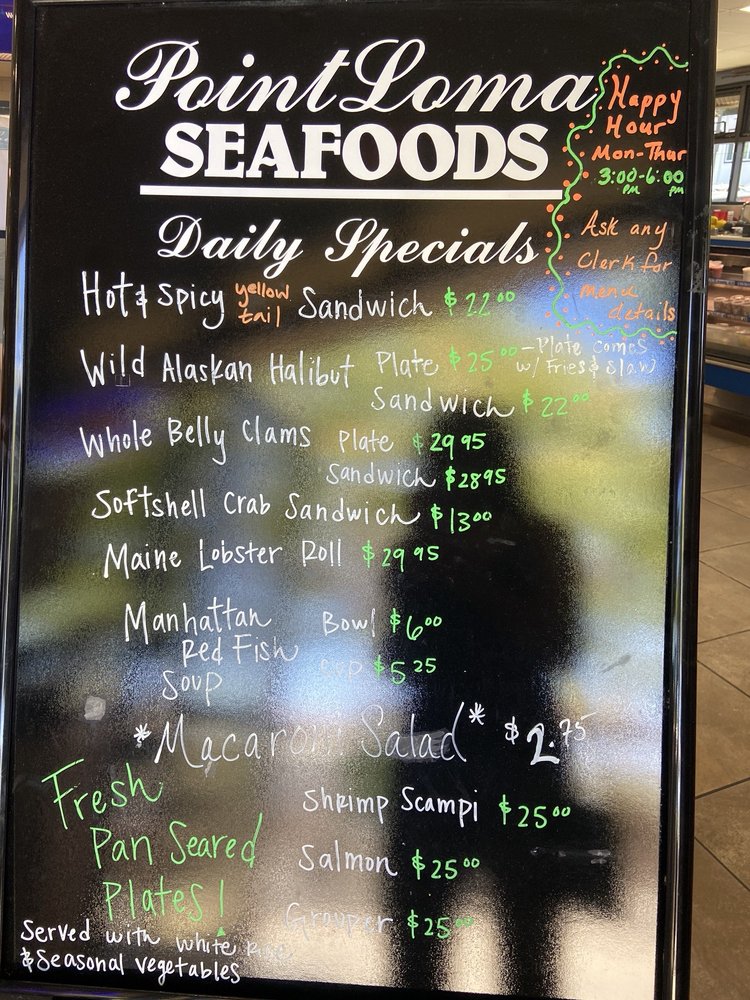 Point Loma
SEAFOODS
Daily Specials
Happy
Hour
Mon-Thur
3:00-6:00
PM PM
Ask any
Clerk for
menu
details
Hot & Spicy yellow tail Sandwich $22.00
Wild Alaskan Halibut Plate $25.00 -Plate comes
w/ Fries & Slaw
Sandwich $22.00
Whole Belly Clams Plate $29.95
Sandwich $28.95
Softshell Crab Sandwich $13.00
Maine Lobster Roll $29.95
Manhattan Bowl $6.00
Red Fish cup $5.25
Soup
*Macaroni Salad* $2.75
Fresh
Pan Seared
Plates!
Shrimp Scampi $25.00
Salmon $25.00
Grouper $25.00
Served with white Rice
& Seasonal vegetables